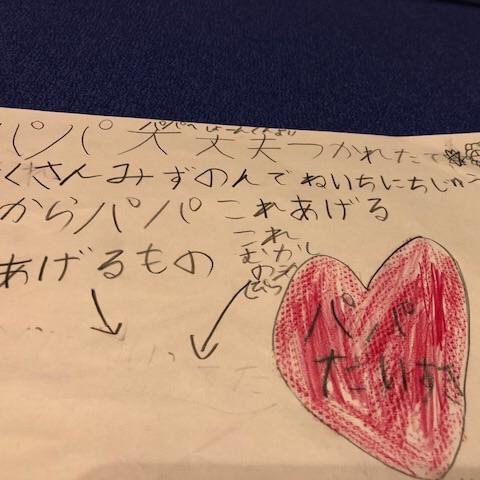 パパへ
パパ大丈夫つかれたで
くさんみずのんでねいちにちじゅう
からパパこれあげる
あげるもの
これ
むかし
の
パパ
だいすき